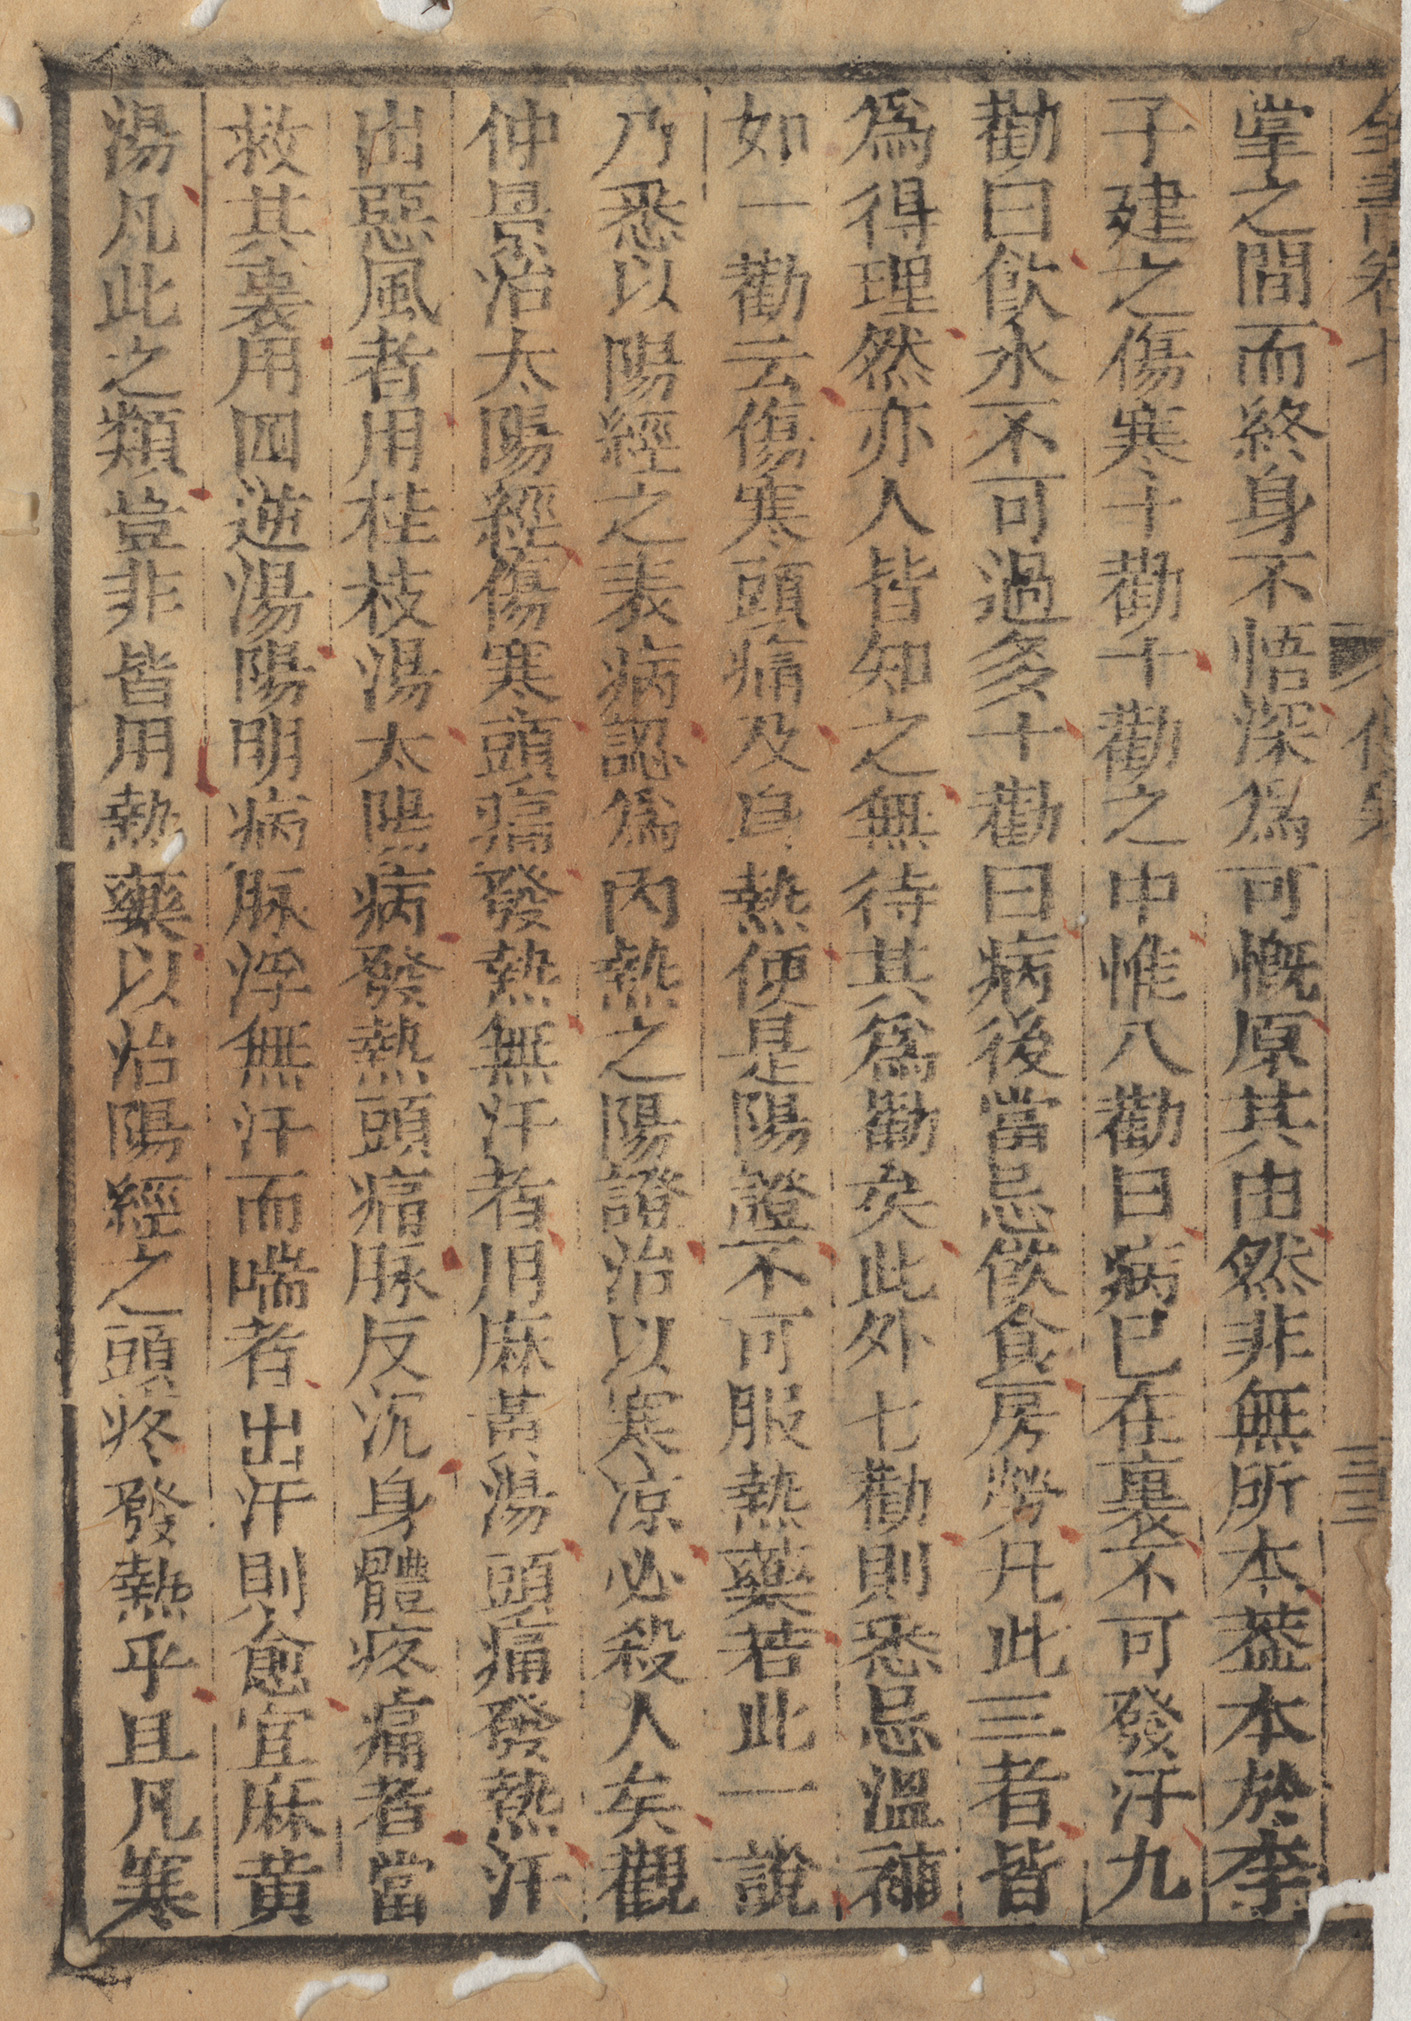 全書卷七
三三
掌之間而終身不悟深爲可慨原其由然非無所本葢本於李
子建之傷寒十勸十勸之中惟八勸曰病已在裏不可發汗九
勸曰飲水不可過多十勸曰病後當忌飲食房勞凡此三者皆
爲得理然亦人皆知之無待其爲勸矣此外七勸則悉忌溫補
如一勸云傷寒頭痛及身熱便是陽證不可服熱藥若此一說
乃悉以陽經之表病認爲內熱之陽證治以寒凉必殺人矣觀
仲景治太陽經傷寒頭痛發熱無汗者用麻黃湯頭痛發熱汗
出惡風者用桂枝湯太陽病發熱頭痛脉反沉身體疼痛者當
救其裏用四逆湯陽明病脉浮無汗而喘者出汗則愈宜麻黃
湯凡此之類豈非皆用熱藥以治陽經之頭疼發熱乎且凡寒